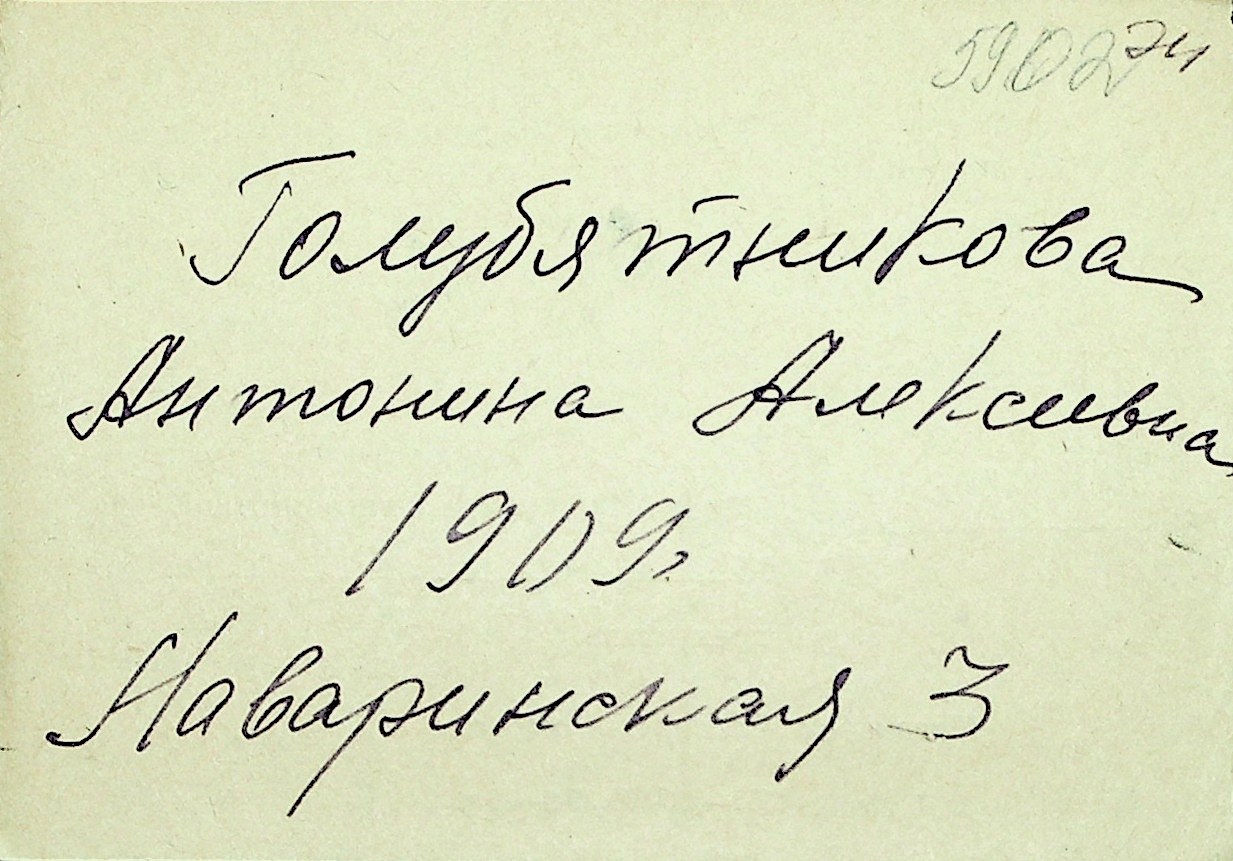 590274
Голубятникова
Антонина Алексевна
1909г
Наваринская 3